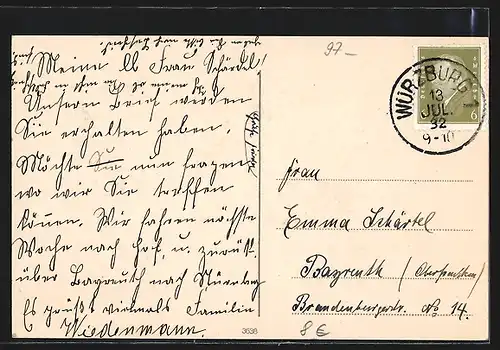 97–
Meine lb Frau Schärdel!
Unsern Brief werden
Sie erhalten haben.
Möchte Sie nun fragen
wo wir Sie treffen
können. Wir fahren nächste
Woche nach Hof, u. zurück
über Bayreuth nach Nürnberg
Es grüßt vielmals Familie
Wiedenmann.
3638
WÜRZBURG
13
JUL.
32
9-10
6
Frau
Emma Schärtel
Bayreuth (Oberfranken)
Brandenburgerstr. No 14.
8 €